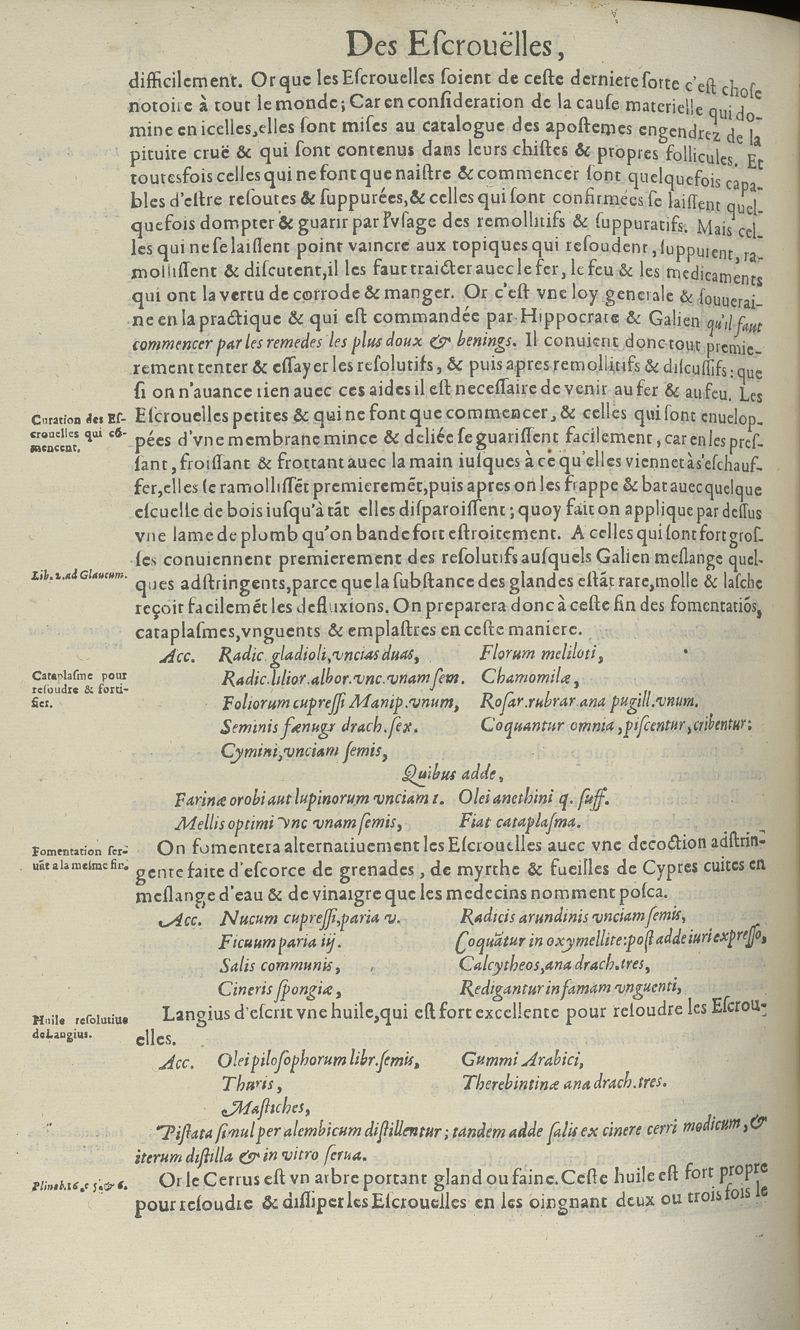 Des Eſcrouëlles,
difficilement. Or que les Eſcrouelles ſoient de ceſte derniere ſorte c'eſt choſe
notoire à tout le monde; Car en conſideration de la cauſe materielle qui do-
mine en icelles, elles ſont miſes au catalogue des apoſtemes engendrez de la
pituite cruë & qui ſont contenus dans leurs chiſtes & propres follicules. Et
toutesfois celles qui ne font que naiſtre & commencer ſont quelquefois capa-
bles d'eſtre reſoutes & ſuppurées, & celles qui ſont confirmées ſe laiſſent quel-
quefois dompter & guarir par l'vſage des remollitifs & ſuppuratifs. Mais cel-
les qui ne ſe laiſſent point vaincre aux topiques qui reſoudent, ſuppurent, ra-
molliſſent & diſcutent, il les faut traicter auec le fer, le feu & les medicaments
qui ont la vertu de corrode & manger. Or c'eſt vne loy generale & ſouuerai-
ne en la practique & qui eſt commandée par Hippocrate & Galien qu'il faut
commencer par les remedes les plus doux & benings. Il conuient donc tout premie-
rement tenter & eſſayer les reſolutifs, & puis apres remollitifs & diſcuſſifs: que
ſi on n'auance rien auec ces aides il eſt neceſſaire de venir au fer & au feu. Les
Curation des Eſ-
crouelles qui cō-
mencent.
Eſcrouelles petites & qui ne font que commencer, & celles qui ſont enuelop-
pées d'vne membrane mince & deliée ſe guariſſent facilement, car en les preſ-
ſant, froiſſant & frottant auec la main iuſques à ce qu'elles viennēt à s'eſchauf-
fer, elles ſe ramolliſſēt premieremēt, puis apres on les frappe & bat auec quelque
eſcuelle de bois iuſqu'à tāt elles diſparoiſſent; quoy fait on applique par deſſus
vne lame de plomb qu'on bande fort eſtroitement. A celles qui ſont fort groſ-
ſes conuiennent premierement des reſolutifs auſquels Galien meſlange quel-
Lib. 2. ad Glaucum.
ques adſtringents, parce que la ſubſtance des glandes eſtāt rare, molle & laſche
reçoit facilemēt les defluxions. On preparera donc à ceſte fin des fomentatiōs,
cataplaſmes, vnguents & emplaſtres en ceſte maniere.
Cataplaſme pour
reſoudre & forti-
fier.
Acc. Radic gladioli, vncias duas, Florum meliloti,
Radic. lilior. albor. vnc. vnam ſem. Chamomilæ,
Foliorum cupreſſi Manip. vnum, Roſar. rubrar. ana pugill. vnum.
Seminis fænugr drach. ſex. Coquantur omnia, piſcentur, cribentur;
Cymini, vnciam ſemis,
Quibus adde,
Farinæ orobi aut lupinorum vnciam 1. Olei anethini q. ſuff.
Mellis optimi vnc vnam ſemis, Fiat cataplaſma.
Fomentation ſer-
uāt a la meſme fin.
On fomentera alternatiuement les Eſcrouelles auec vne decoction adſtrin-
gente faite d'eſcorce de grenades, de myrthe & fueilles de Cypres cuites en
meſlange d'eau & de vinaigre que les medecins nomment poſca.
Acc. Nucum cupreſſi, paria v. Radicis arundinis vnciam ſemis,
Ficuum paria iij. Coquātur in oxymellite: poſt adde iuri expreſſo,
Salis communis, Calcytheos, ana drach. tres,
Cineris ſpongiæ, Redigantur in famam vnguenti,
Huile reſolutiue
de Langius.
Langius d'eſcrit vne huile, qui eſt fort excellente pour reſoudre les Eſcrou-
elles.
Acc. Olei piloſophorum libr. ſemis, Gummi Arabici,
Thuris, Therebintinæ ana drach. tres.
Maſtiches,
Piſtata ſimul per alembicum diſtillentur; tandem adde ſalis ex cinere cerri modicum, &
iterum diſtilla & in vitro ſerua.
Plin. l. 16. c 5. & 6.
Or le Cerrus eſt vn arbre portant gland ou faine. Ceſte huile eſt fort propre
pour reſoudre & diſſiper les Eſcrouelles en les oingnant deux ou trois fois le